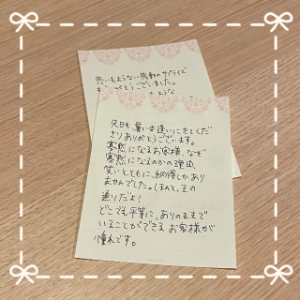 思いもよらない感動のサプライズ
ありがとうございました。
先日も暑い中逢いにきてくだ
さりありがとうございます。
寡黙になるお客様、なぜ
寡黙になるのかの理由
笑いとともに、納得しかあり
ませんでした。ほんと、その
通りだよ！
どこでも平常に、ありのままで
いることができるお客様が
憧れです。